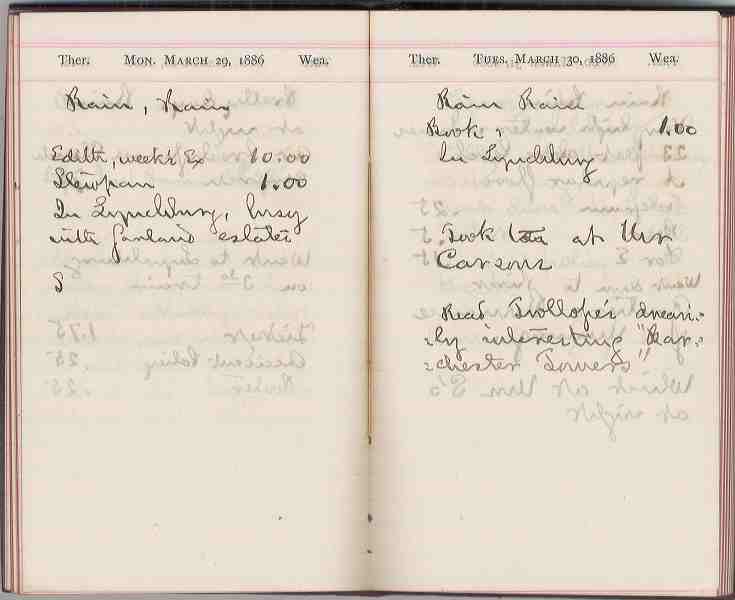 Ther. Mon. March 29, 1886 Wea.
Rain, Rain
Edith, week's Ex 10.00
Stewpan 1.00
In Lynchburg, busy
with Garland estates
S
Ther. Tues. March 30, 1886 Wea.
Rain Rain
Book, 1.00
In Lynchburg
Took tea at Mrs
Carsons
Read Trollope's dreari-
-ly interesting "Bar-
-chester Towers"